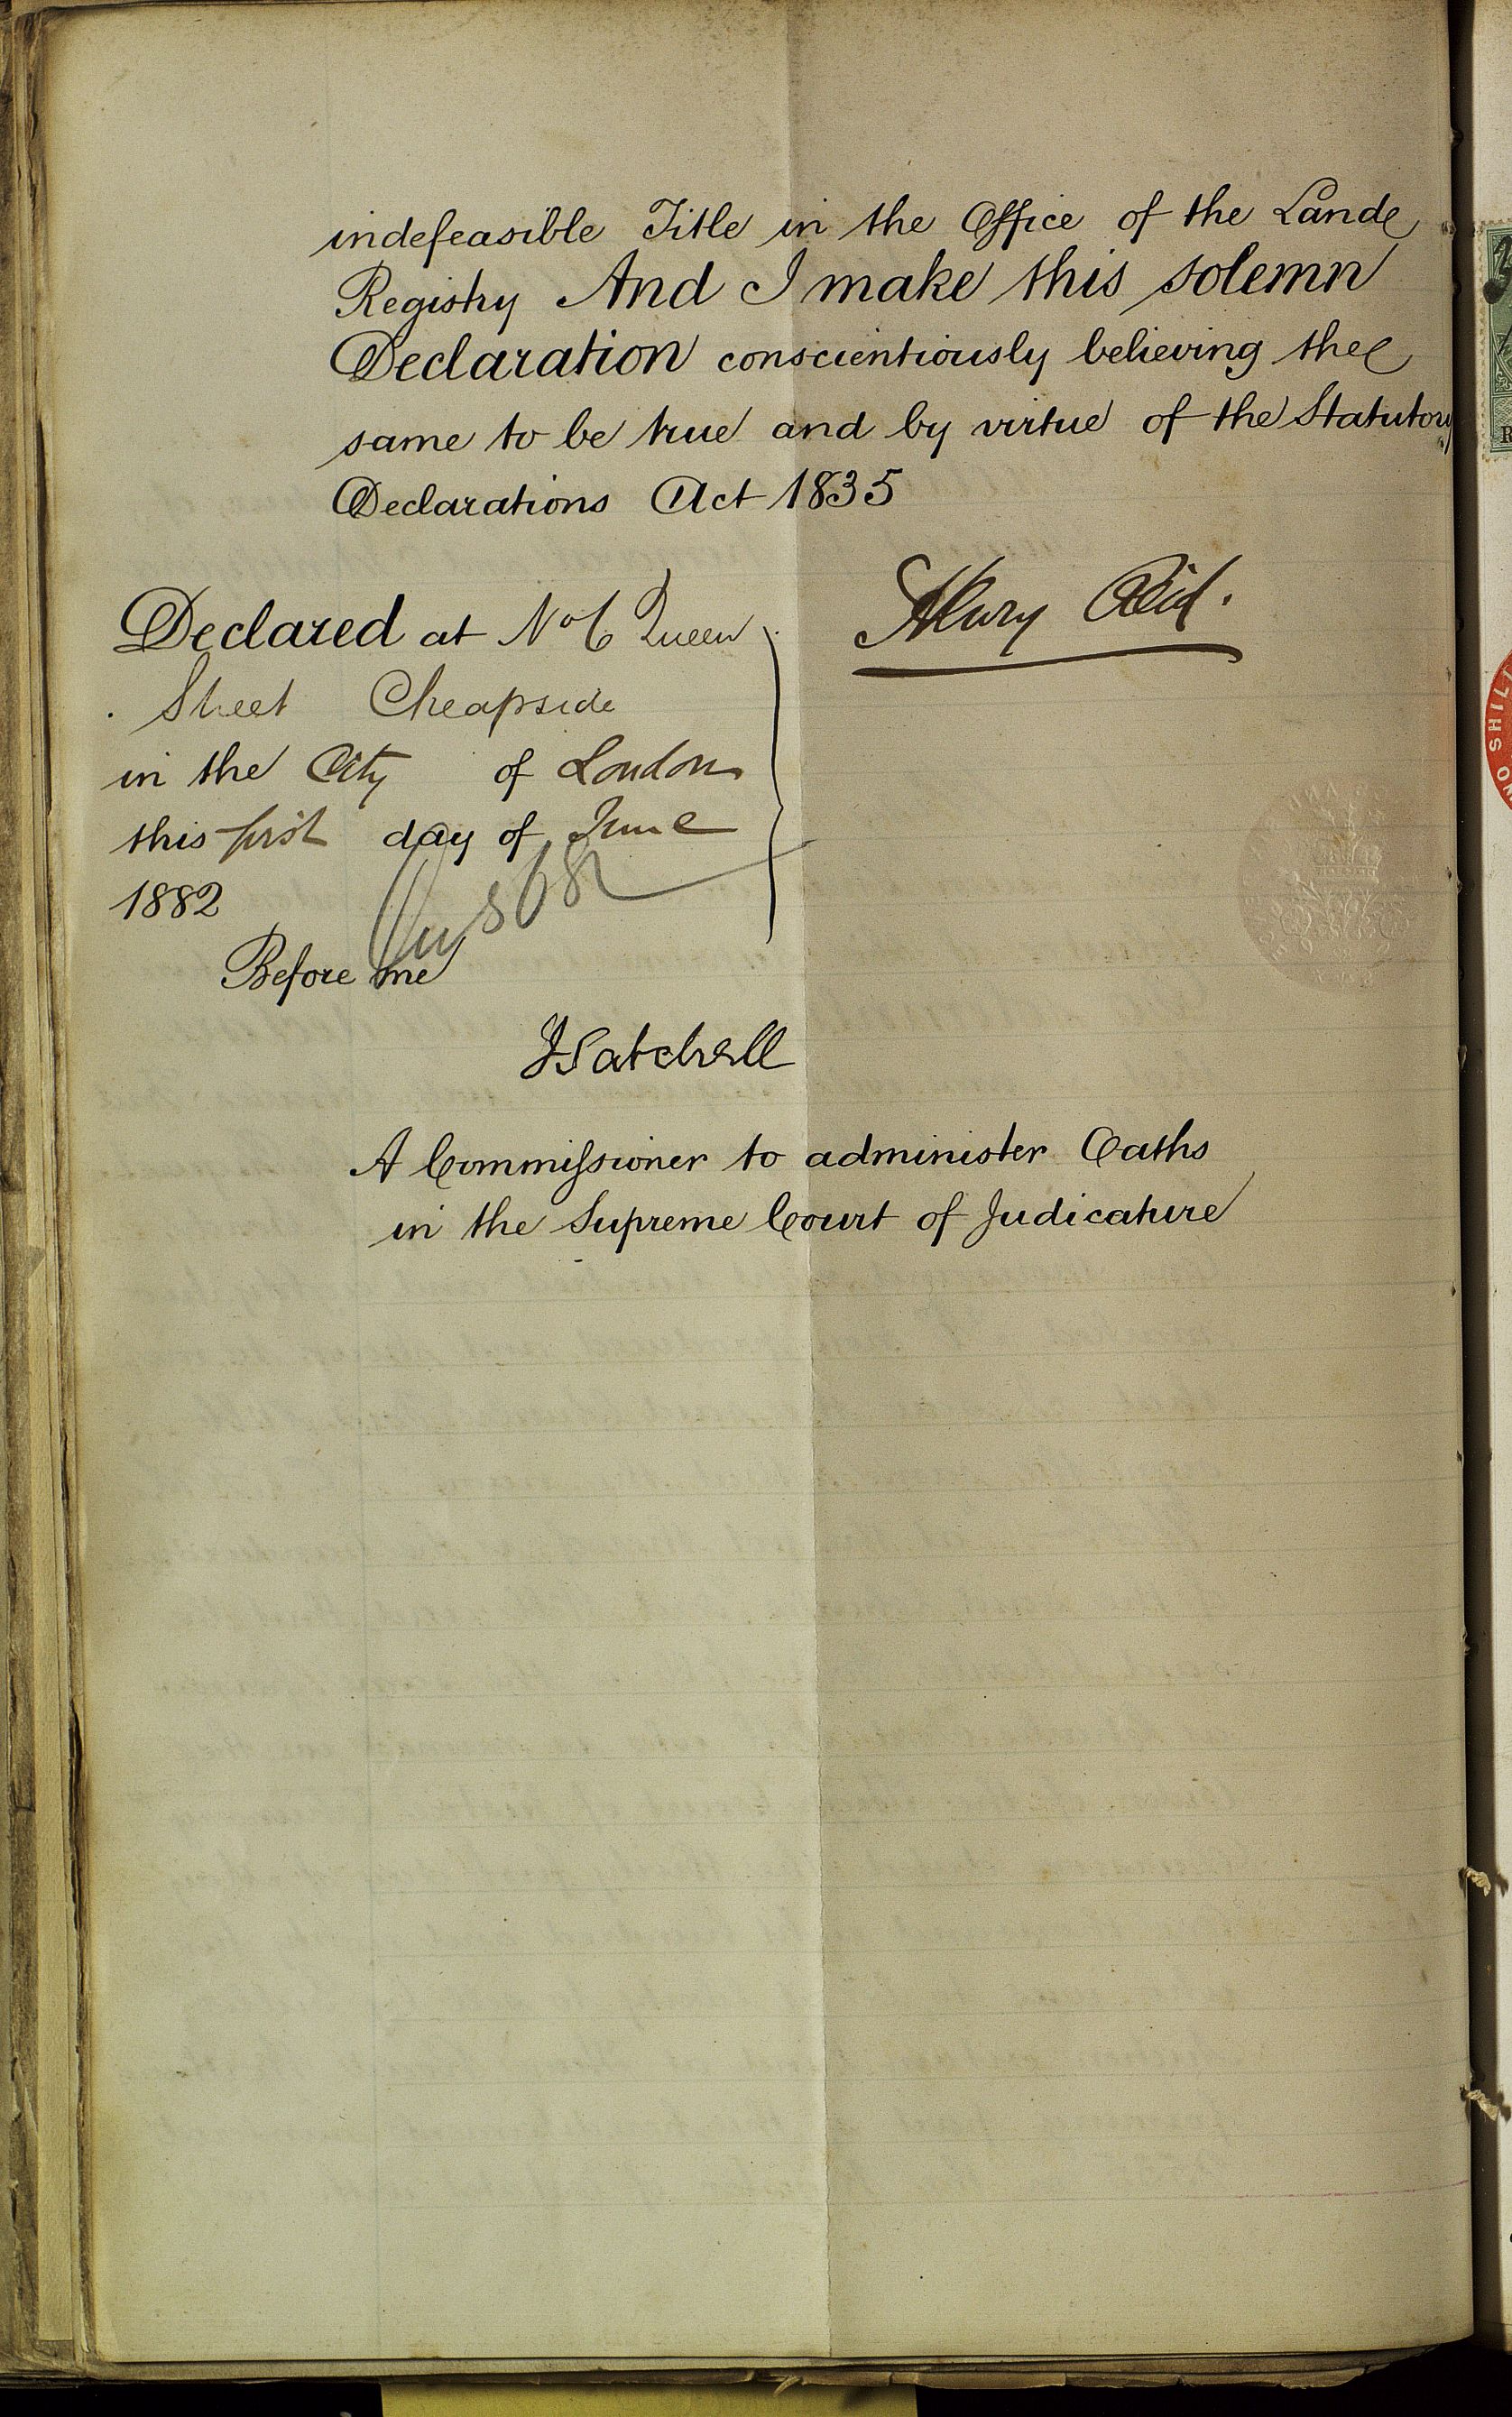 indefeasible Title in the Office of the Land
Registry And I make this solemn
Declaration conscientiously believing the
same to be true and by virtue of the Statutory
Declarations Act 1835
Henry Reid.
Declared at No 6 Queen
Street Cheapside
in the City of London
this first day of June
1882
Before me
J Satchell
A Commissioner to administer Oaths
in the Supreme Court of Judicature